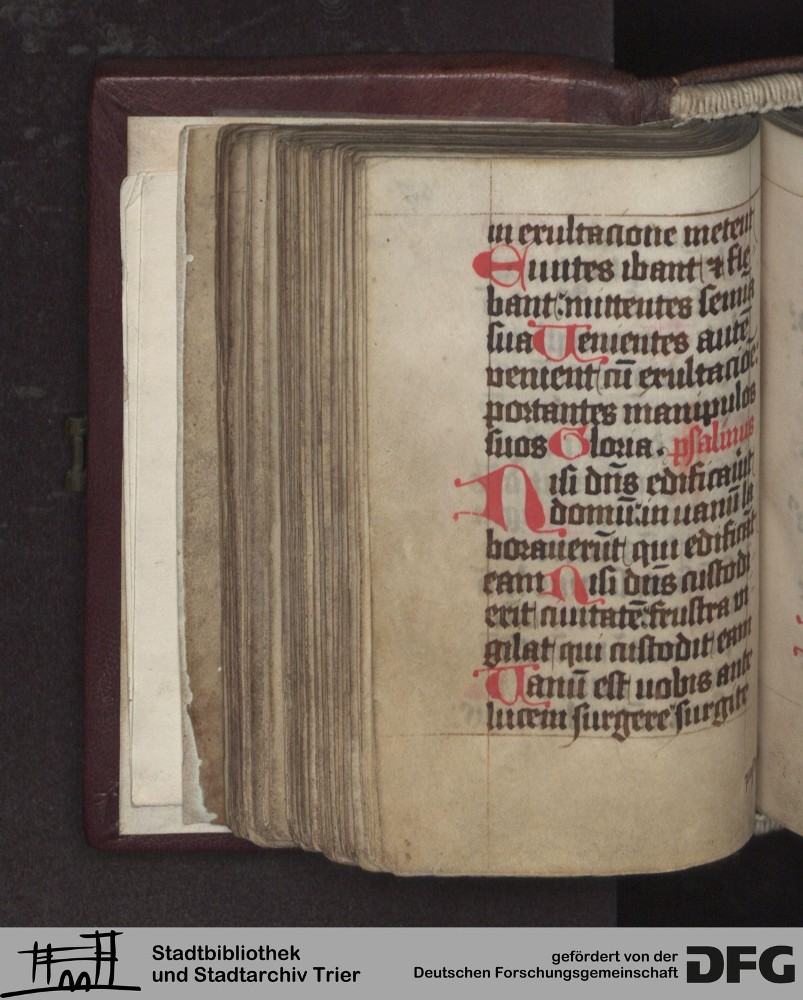 in exultacione metent
Euntes ibant ⁊ fle
bant: mittentes semina
sua Uenientes autē
venient cū exultacioē.
portantes manipulos
suos Gloria. psalmus
Nisi dn̄s edificauīt
domū: in uanū la
borauerūt qui edificāt
eam Nisi dn̄s custodi
erit ciuitatē: frustra vi
gilat qui custodit eam
Uanū est uobis ante
lucem surgere surgite
Stadtbibliothek
und Stadtarchiv Trier
gefördert von der
Deutschen Forschungsgemeinschaft
DFG